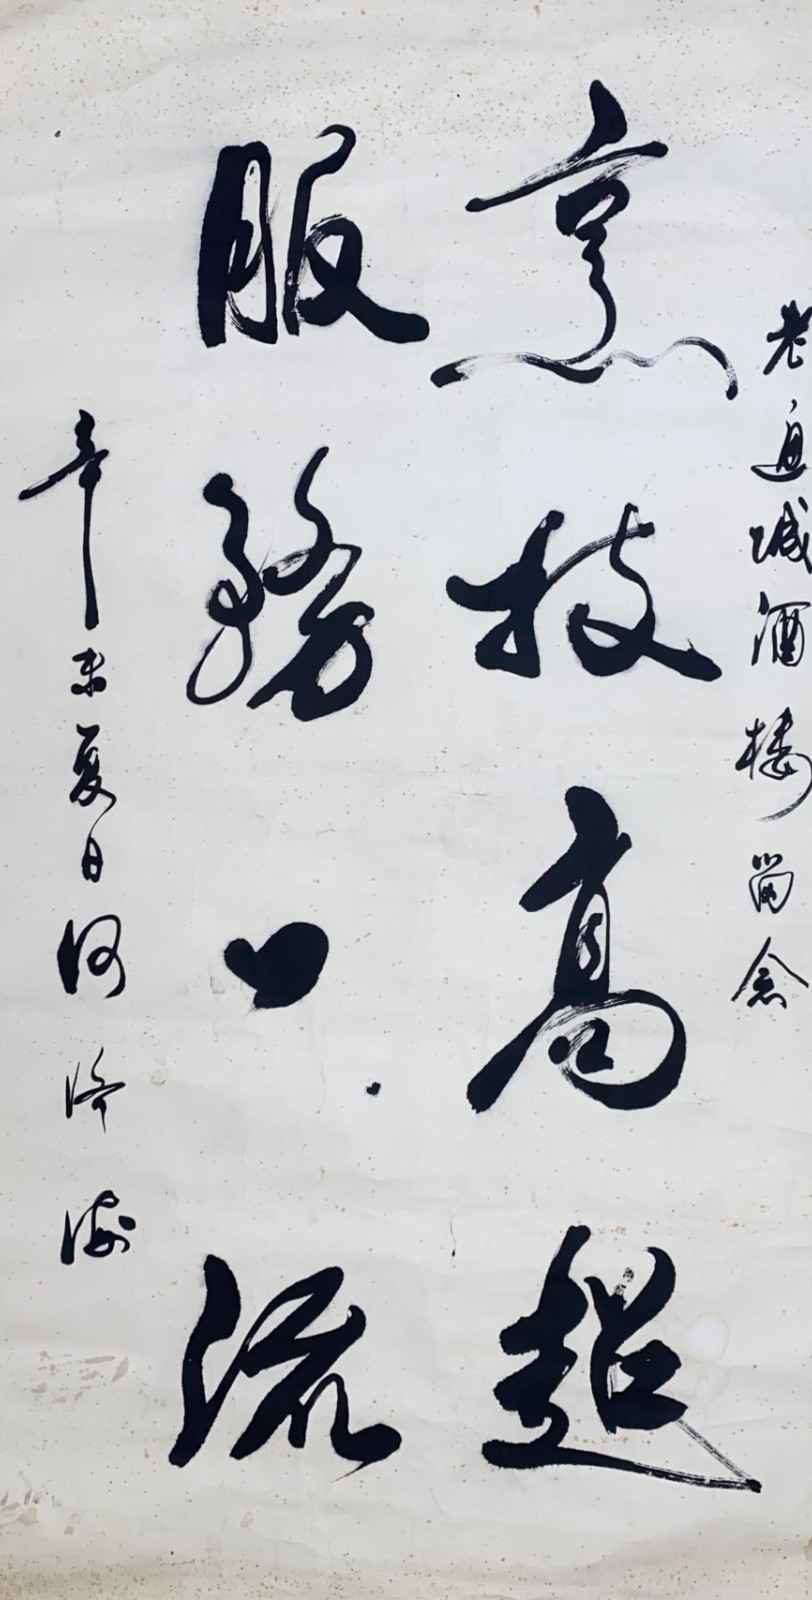 老通城酒楼留念
烹技高超
服務一流
辛未夏日何海